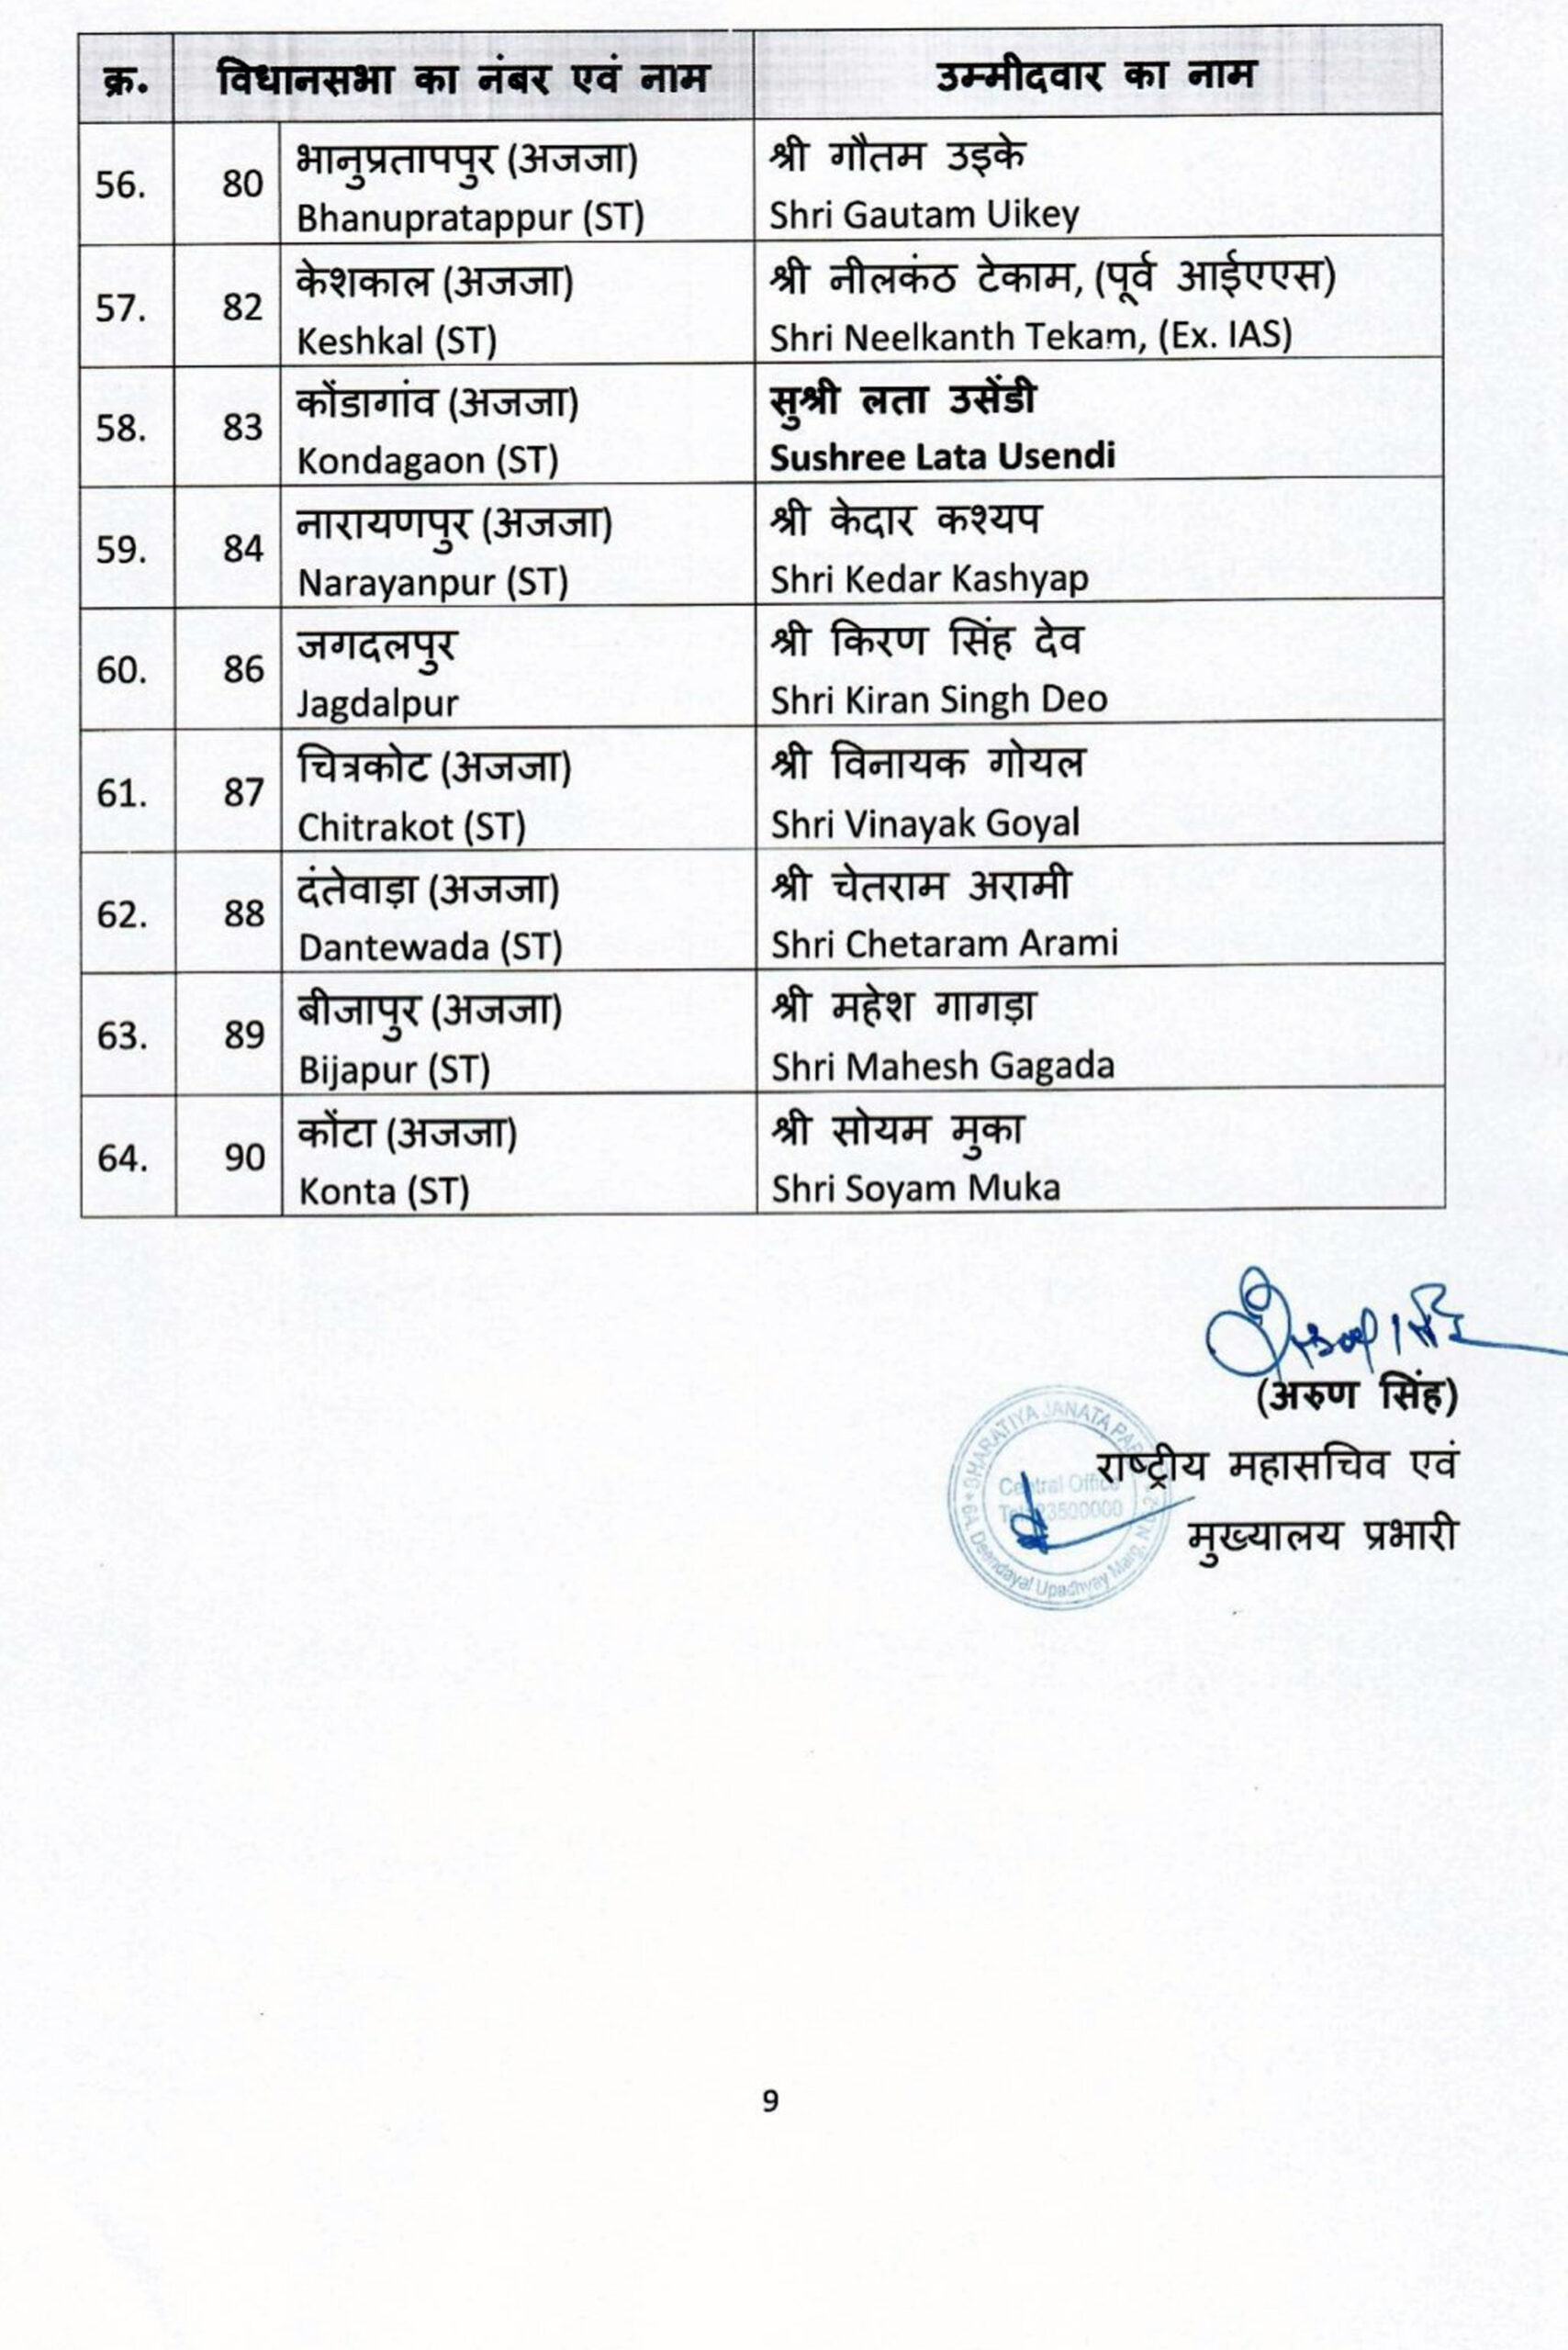 क्र. विधानसभा का नंबर एवं नाम उम्मीदवार का नाम
56. 80 भानुप्रतापपुर (अजजा) श्री गौतम उइके
Bhanupratappur (ST) Shri Gautam Uikey
57. 82 केशकाल (अजजा) श्री नीलकंठ टेकाम, (पूर्व आईएएस)
Keshkal (ST) Shri Neelkanth Tekam, (Ex. IAS)
58. 83 कोंडागांव (अजजा) सुश्री लता उसेंडी
Kondagaon (ST) Sushree Lata Usendi
59. 84 नारायणपुर (अजजा) श्री केदार कश्यप
Narayanpur (ST) Shri Kedar Kashyap
60. 86 जगदलपुर श्री किरण सिंह देव
Jagdalpur Shri Kiran Singh Deo
61. 87 चित्रकोट (अजजा) श्री विनायक गोयल
Chitrakot (ST) Shri Vinayak Goyal
62. 88 दंतेवाड़ा (अजजा) श्री चेतराम अरामी
Dantewada (ST) Shri Chetaram Arami
63. 89 बीजापुर (अजजा) श्री महेश गागड़ा
Bijapur (ST) Shri Mahesh Gagada
64. 90 कोंटा (अजजा) श्री सोयम मुका
Konta (ST) Shri Soyam Muka
(अरुण सिंह)
राष्ट्रीय महासचिव एवं
मुख्यालय प्रभारी
BHARATIYA JANATA
Central Office
6A, Deendayal Upadhyay Marg,
9